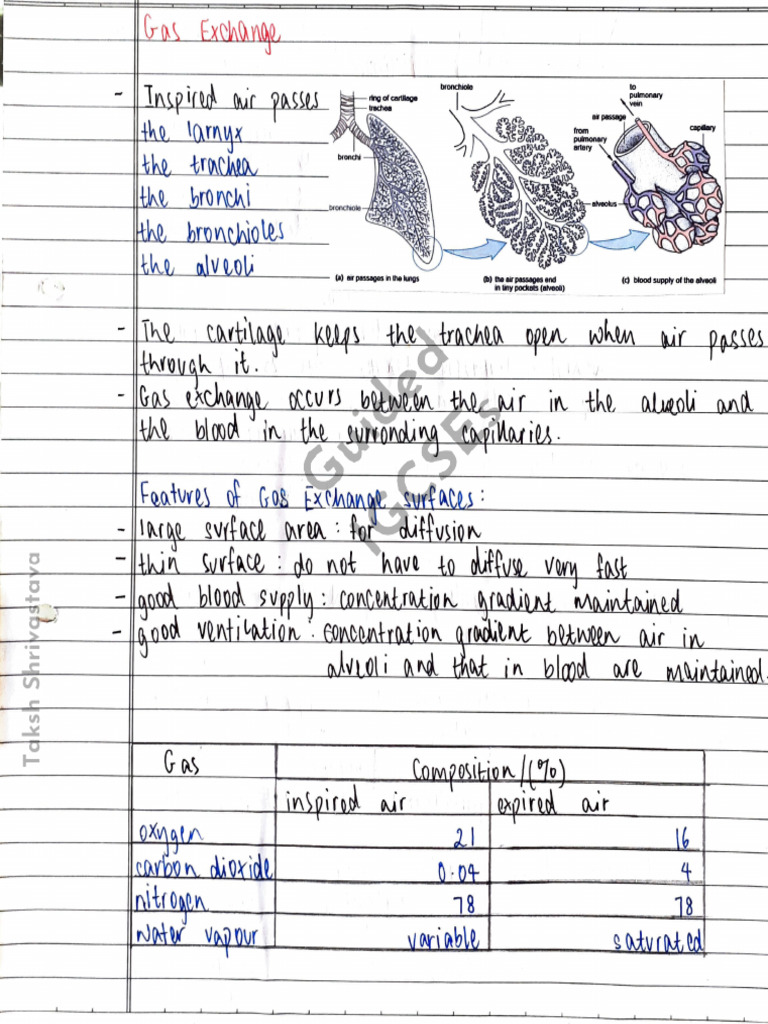 Gas Exchange
- Inspired air passes
the larnyx
the trachea
the bronchi
the bronchioles
the alveoli
ring of cartilage
trachea
bronchi
bronchiole
(a) air passages in the lungs
bronchiole
(b) the air passages end
in tiny pockets (alveoli)
to
pulmonary
vein
air passage
from
pulmonary
artery
capillary
alveolus
(c) blood supply of the alveoli
- The cartilage keeps the trachea open when air passes
through it.
- Gas exchange occurs between the air in the alveoli and
the blood in the surronding capillaries.
Features of Gas Exchange surfaces:
- large surface area: for diffusion
- thin surface: do not have to diffuse very fast
- good blood supply: concentration gradient maintained
- good ventilation: concentration gradient between air in
alveoli and that in blood are maintained.
Gas Composition/(%)
inspired air expired air
oxygen 21 16
carbon dioxide 0.04 4
nitrogen 78 78
water vapour variable saturated
Guided
IGCSEs
Taksh Shrivastava